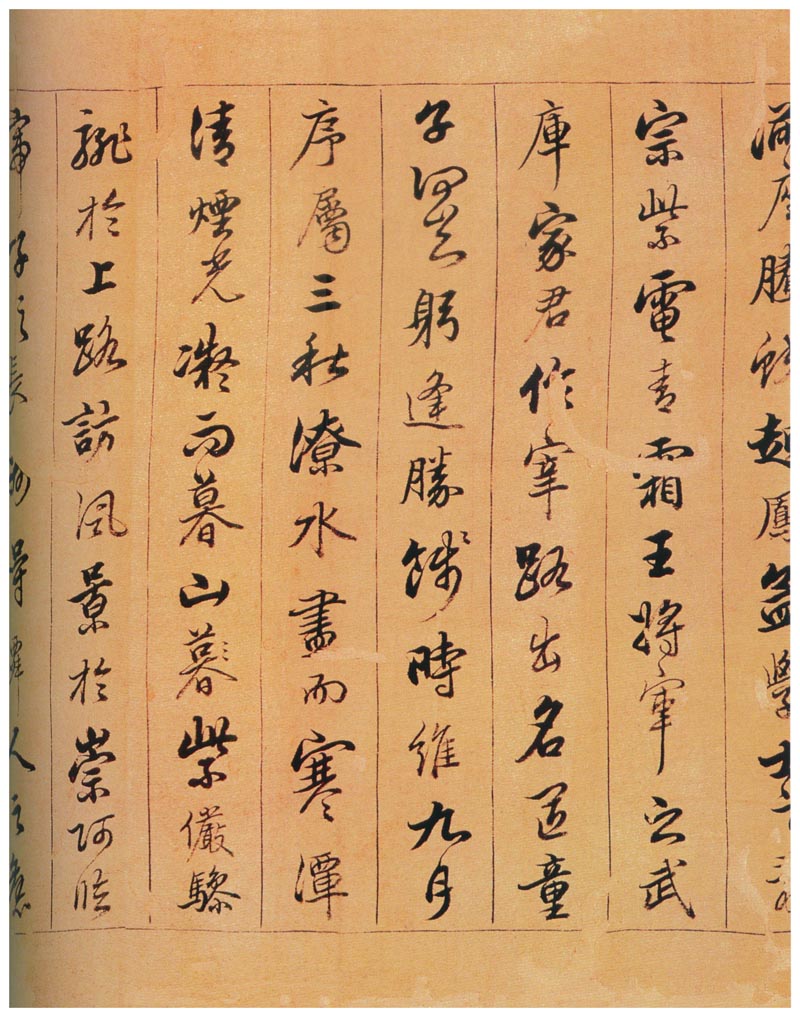 滿座騰蛟起鳳孟學士之詞
宗紫電青霜王將軍之武
庫家君作宰路出名區童
子何知躬逢勝餞時維九月
序屬三秋潦水盡而寒潭
清煙光凝而暮山暮紫儼驂
騑於上路訪風景於崇阿臨
帝子之長洲得人之舊